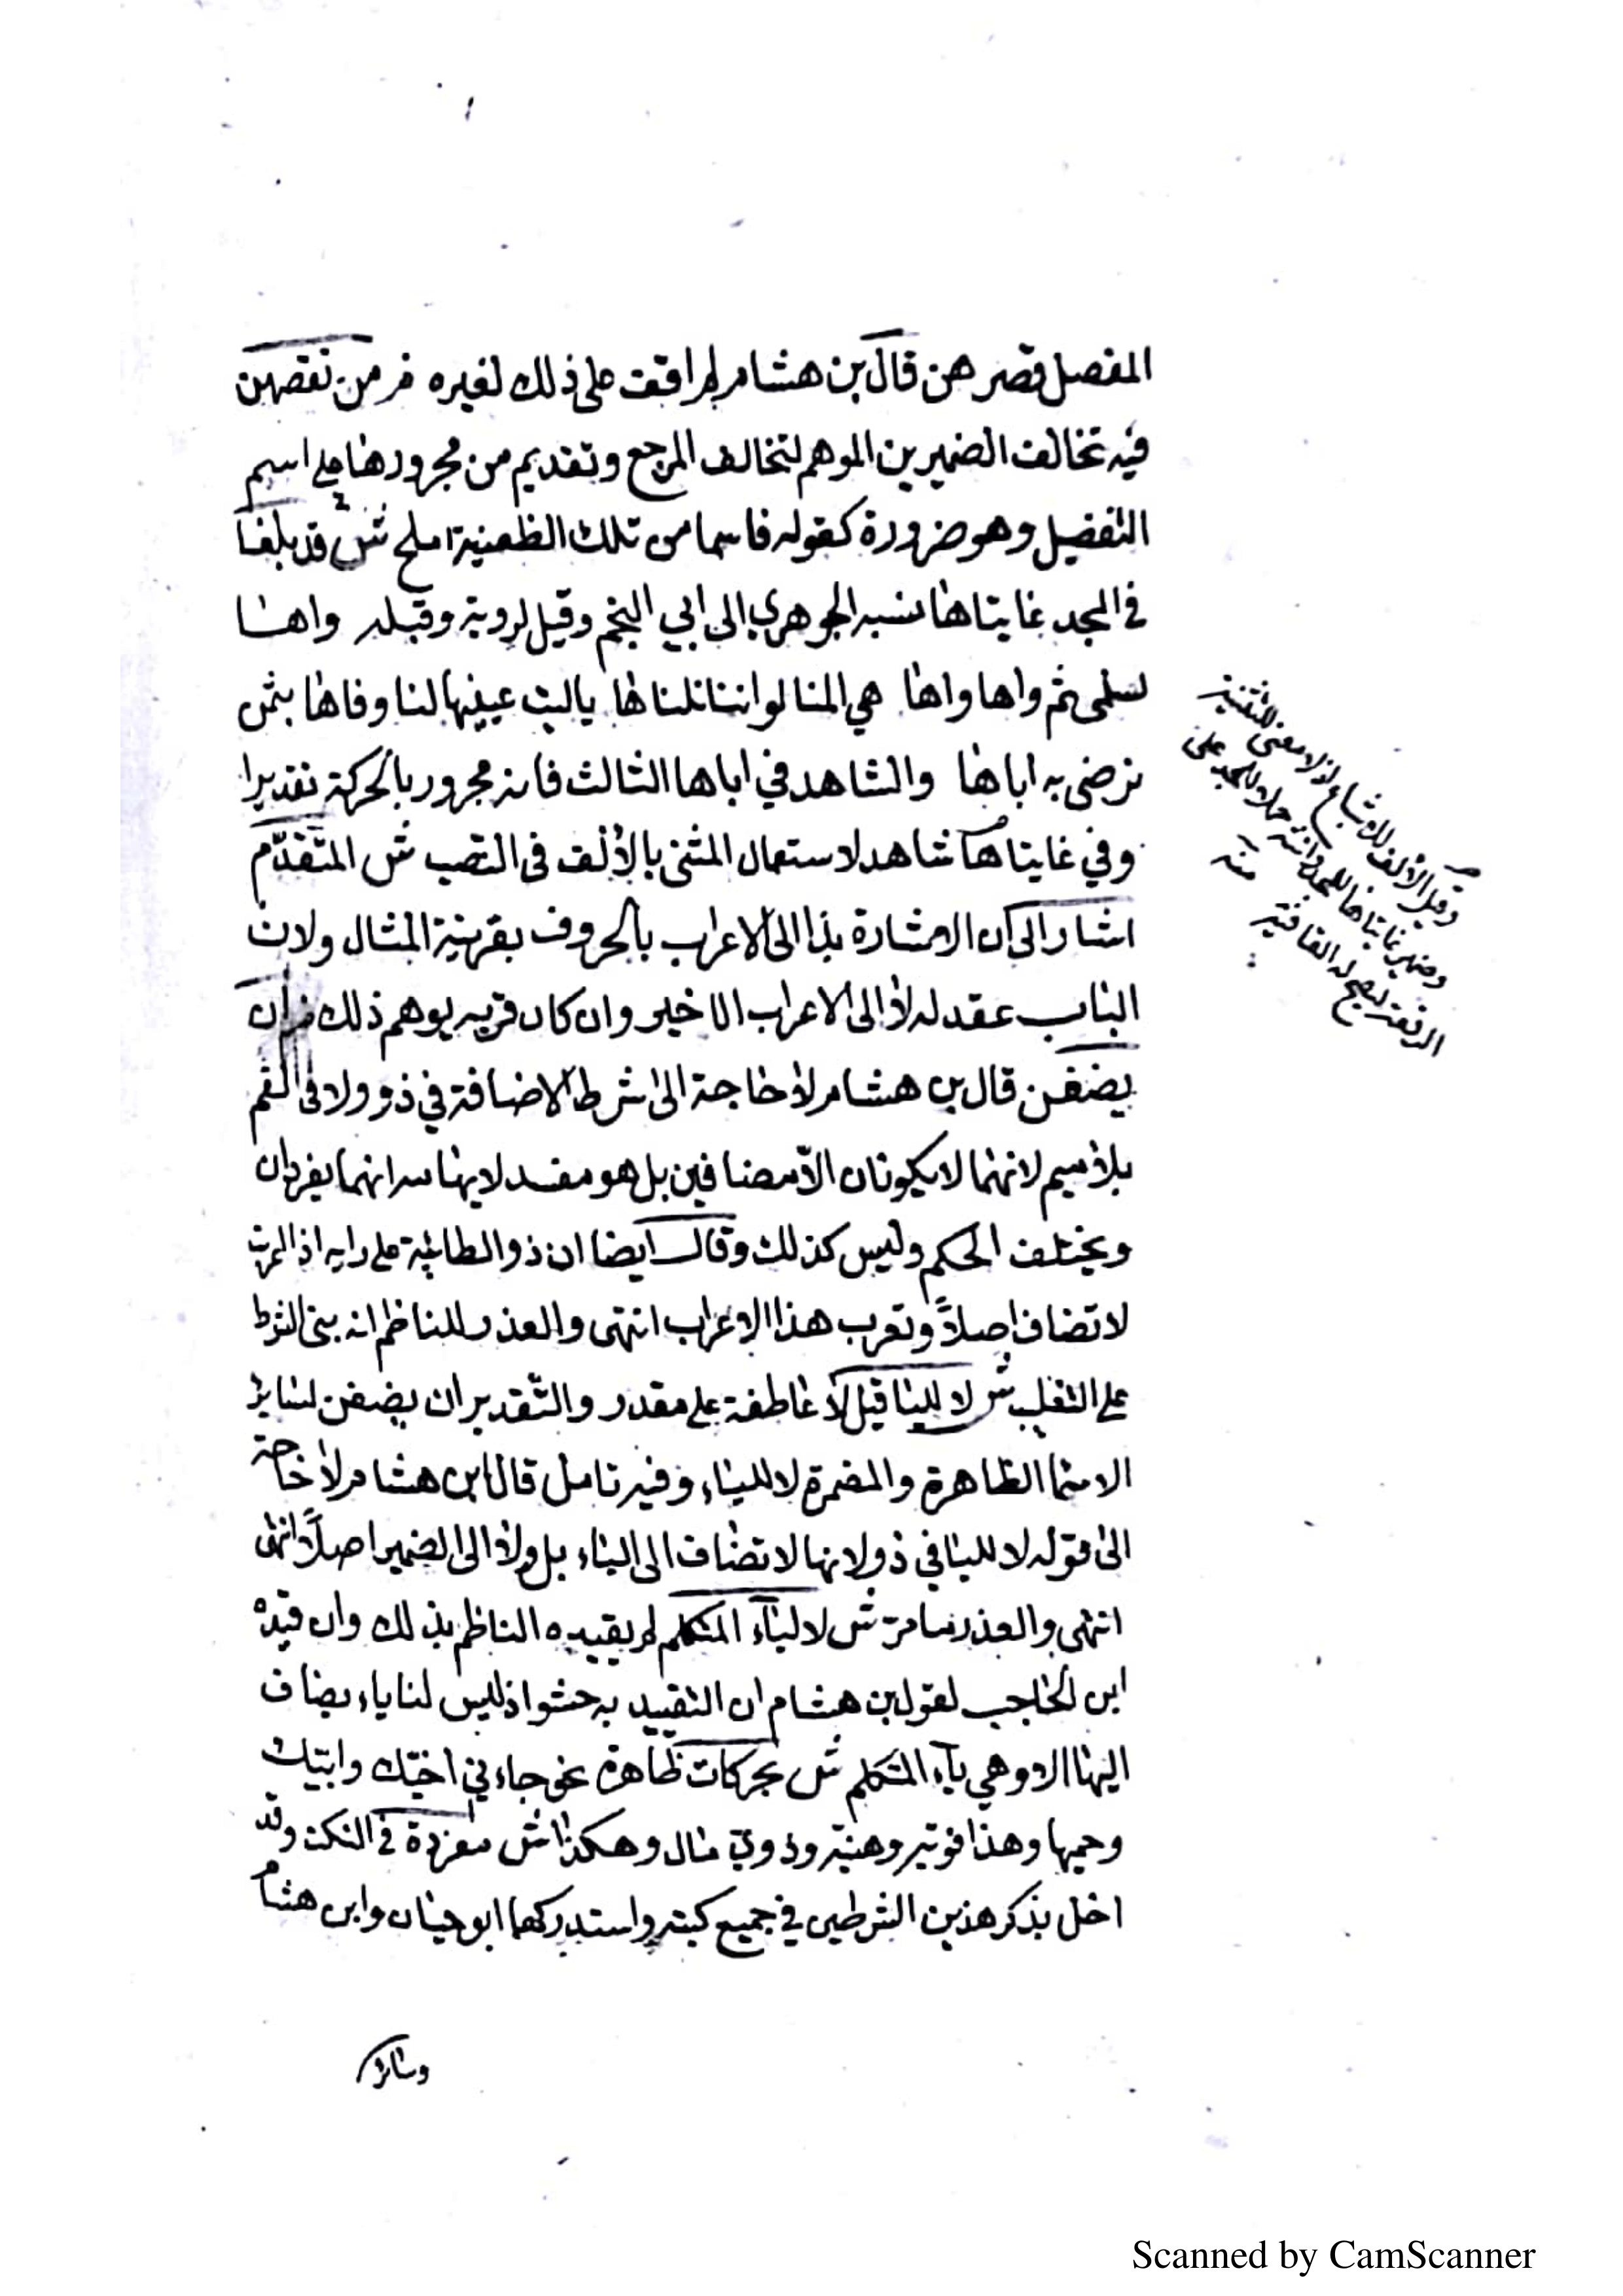 المفصل قصر هن قال بن هشام لم اقف على ذلك لغيره م من نقصهن
فيه تخالف الضميرين الموهم لتخالف المرجع وتقديم من مجرورها على اسم
التفضيل وهو ضرورة كقوله فاسما من تلك الظعينة املح ش قد بلغا
في المجد غايتاها نسبه الجوهري الى ابي النجم وقيل لروبة وقبله واها
لسلمى ثم واها واها هي المنا لو اننا نلناها يا ليت عينيها لنا وفاها بثمن
نرضى به اباها والشاهد في اباها الثالث فانه مجرور بالحركة تقديرا
وفي غايتاها شاهد لاستعمال المثنى بالالف في النصب ش المتقدم
اشار الى ان الاشارة بذا الى الاعراب بالحروف بقرينة المثال ولان
الباب عقد له لا الى الاعراب الاخير وان كان قربه يوهم ذلك م ان
يضفن قال بن هشام لا حاجة الى شرط الاضافة في ذو ولا في الفم
بلا ميم لانهما لا يكونان الا مضافين بل هو مفسد لايهامه انهما يفردان
ويختلف الحكم وليس كذلك وقال ايضا ان ذو الطائية على رايه اذ اعربت
لا تضاف اصلا وتعرب هذا الاعراب انتهى والعذر للناظم انه بنى الشرط
على التغلب ش لا لليا قيل لا عاطفة على مقدر والتقدير ان يضفن لسائر
الاسما الظاهرة والمضمرة لا للياء وفيه تامل قال ابن هشام لا حاجة
الى قوله لا لليا في ذو لانها لا تضاف الى الياء بل ولا الى الضمير اصلا انتهى
انتهى والعذر ما مر ش لا لياء المتكلم لم يقيده الناظم بذلك وان قيده
ابن الحاجب لقول بن هشام ان التقييد به حشو اذ ليس لنا ياء يضاف
اليها الا وهي ياء المتكلم ش بحركات ظاهرة نحو جاءني اخيك وابيك
وحميها وهذا فويه وهنيه وذوي مال وهكذا ش مفردة في النكت وقد
اخل بذكر هذين الشرطين في جميع كتبه واستدركهما ابو حيان وابن هشام
وسائر
وقيل الالف للاشباع اذ لا معنى للتثنية
وضمير غايتاها للمجد وانثه حملا للمجد على
الرفعة لتصح له القافية منه
Scanned by CamScanner